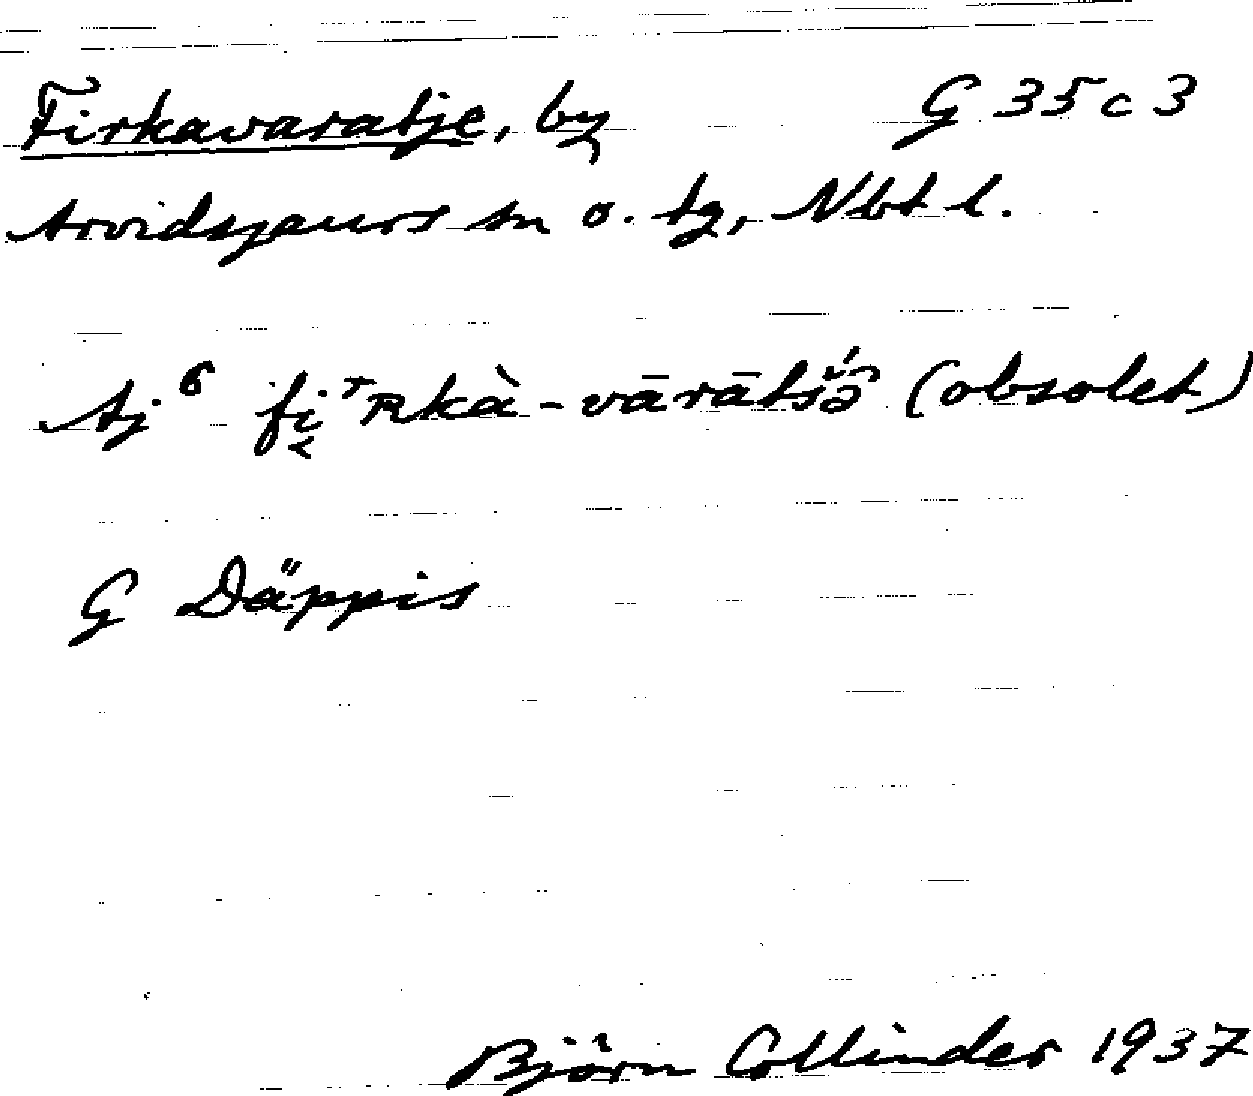 Firkavaratje, by G 35 c 3
Arvidsjaurs sn o. tg, Nbt l.
Aj 6 (obsolet)
G Däppis
Björn Collinder 1937